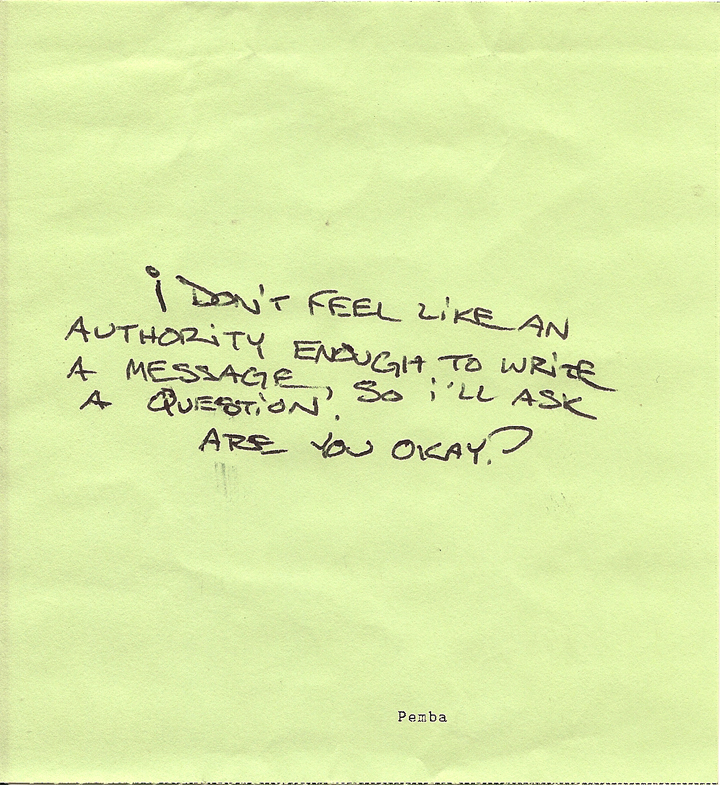 i DON'T FEEL LiKE AN
AUTHORiTY ENOUGH TO WRiTE
A MESSAGE, SO i'LL ASK
A QUESTiON.
ARE YOU OKAY?
Pemba